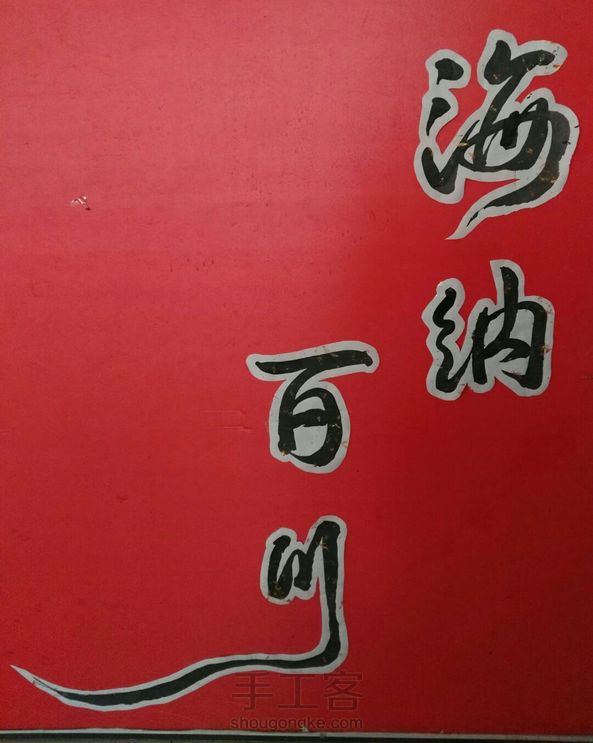 海纳
百川
手工客
shougongke.com